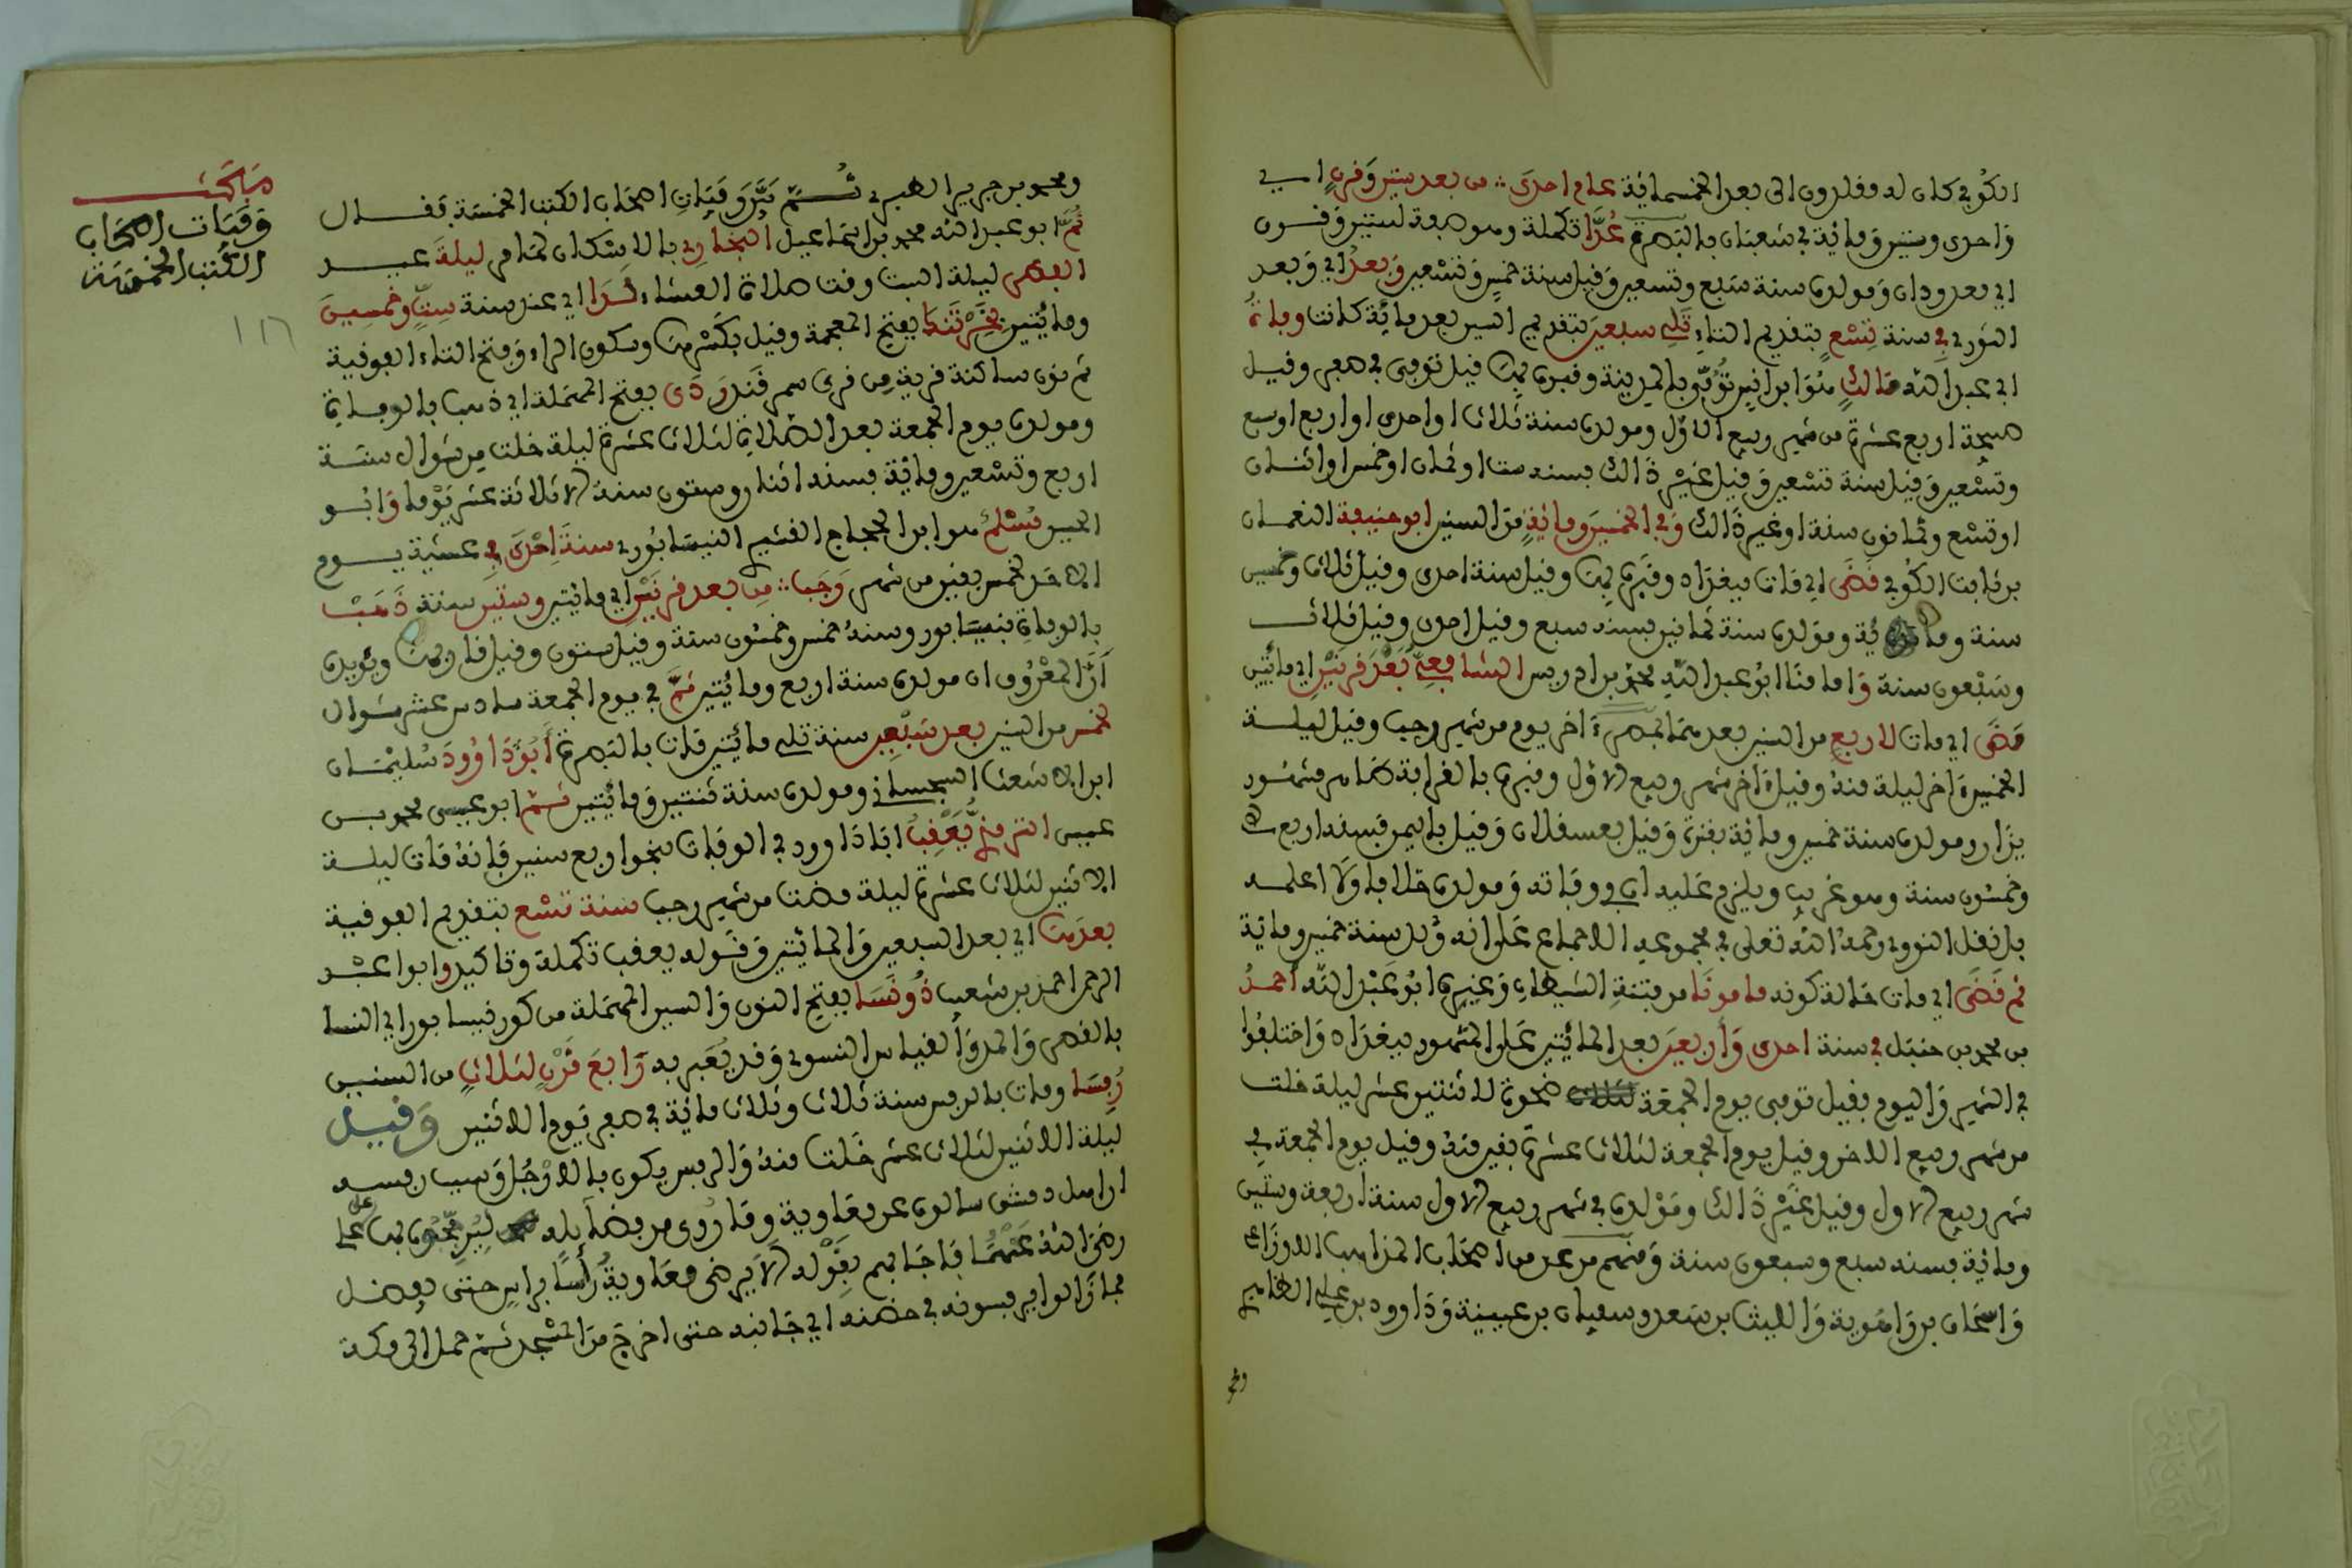 الكوفي كان له مفلدون الى بعد الخمسمائة عام احدى من بعد ستين وفرن اي في
واحدى وستين ومائة في شعبان بالبصرة عدا تكملة وهو صفة لستين وفرن
اي معدودان ومولده سنة سبع وتسعين وفيل سنة خمس وتسعين وبعد اي وبعد
الثوري في سنة تسع بتفديم التاء تلي سبعين بتفديم السين بعد مائة كانت وفاة
ابي عبد الله مالك هو ابن انس توفي بالمدينة وفبره بها فيل توفي في صفر وفيل
صبيحة اربع عشرة من شهر ربيع الاول ومولده سنة ثلاث او احدى او اربع او سبع
وتسعين وفيل سنة تسعين وفيل غير ذالك فسنه ست او ثمان او خمس او اثنان
او تسع وثمانون سنة او غير ذالك وفي الخمسين ومائة من السنين ابو حنيفة النعمان
بن ثابت الكوفي فضى اي مات ببغداد وفبره بها وفيل سنة احدى وفيل ثلاث وخمسين
سنة ومائة ومولده سنة ثمانين فسنه سبع وفيل احدى وفيل ثلاث
وسبعون سنة واما منا ابو عبد الله محمد بن ادريس الشافعي بعد فرنين اي مائتين
مضى اي مات لاربع من السنين بعدهما بمصر اخر يوم من شهر رجب وفيل ليلة
الخميس اخر ليلة منه وفيل اخر شهر ربيع الاول وفبره بالفرافة ضاهر مشهور
يزار ومولده سنة خمسين ومائة بغزة وفيل بعسفلان وفيل باليمن فسنه اربع
وخمسون سنة وهو غريب ويلزم عليه ان ووفاته ومولده خلافا ولا اعلمه
بل نفل النووي رحمه الله تعلى في مجموعه الاجماع على انه ولد سنة خمسين ومائة
ثم فضى اي مات حالة كونه مامونا من فتنة الشيطان وغيرها ابو عبد الله احمد
بن محمد بن حنبل في سنة احدى واربعين بعد المائتين على المشهور ببغداد واختلفوا
في الشهر واليوم ففيل توفي يوم الجمعة ضحوة لاثنتين عشر ليلة خلت
من شهر ربيع الاخر وفيل يوم الجمعة لثلاث عشرة بفين منه وفيل يوم الجمعة في
شهر ربيع الاول وفيل غير ذالك ومولده في شهر ربيع الاول سنة اربعة وستين
ومائة فسنه سبع وسبعون سنة ومنهم من عد من اصحاب المذاهب الاوزاعي
واسحاق بن راهوية والليث بن سعد وسفيان بن عيينة وداوود بن علي الظاهري
ومحمد
ومحمد بن جرير الطبري ثم بين وفيات اصحاب الكتب الخمسة ففال
ثم ابو عبد الله محمد بن اسماعيل البخاري بالاسكان لما مر ليلة عيد
الفطر ليلة السبت وفت صلاة العشاء لدا اي عند سنة ست وخمسين
ومائتين بخرتنك بفتح المعجمة وفيل بكسرها وسكون الراء وفتح التاء الفوفية
ثم نون ساكنة فرية من فرى سمرفند ردى بفتح المهملة اي ذهب بالوفاة
ومولده يوم الجمعة بعد الصلاة لثلاث عشرة ليلة خلت من شوال سنة
اربع وتسعين ومائة فسنه اثنان وستون سنة الا ثلاثة عشر يوما وابو
الحسين مسلم هو ابن الحجاج الفشيري النيسابوري سنة احدى في عشية يوم
الاحد لخمس بفين من شهر رجب من بعد فرنين اي مائتين وستين سنة ذهب
بالوفاة بنيسابور وسنه خمس وخمسون سنة وفيل ستون وفيل فاربها ويؤيده
ان المعروف ان مولده سنة اربع ومائتين ثم في يوم الجمعة سادس عشر شوال
لخمس من السنين بعد سبعين سنة تلي مائتين مات بالبصرة ابو داوود سليمان
ابن الاشعث السجستاني ومولده سنة ثنتين ومائتين ثم ابو عيسى محمد بن
عيسى الترمذي يعفب ابا داوود في الوفاة بنحو اربع سنين فانه مات ليلة
الاثنين لثلاث عشرة ليلة مضت من شهر رجب سنة تسع بتفديم الفوفية
بعدها اي بعد السبعين والمائتين وفوله يعفب تكملة وتاكيد وابو عبد
الرحمن احمد بن شعيب ذو نسا بفتح النون والسين المهملة من كور نيسابور اي النسا
بالفصر والمد والفياس النسوي وفد يعبر به رابع فرن لثلاث من السنين
رفسا ومات بالرفس سنة ثلاث وثلاث مائة في صفر يوم الاثنين وفيل
ليلة الاثنين لثلاث عشر خلت منه والرفس يكون بالاوجل وسبب رفسه
ان اهل دمشق سالوه عن معاوية وما روى من فضايله ليرجحوه بها على علي
رضي الله عنهما فاجابهم بفوله لا يرضى معاوية رأسا براس حتى يفضل
فما زالوا يرفسونه في حضنه اي جانبه حتى اخرج من المسجد ثم حمل الى مكة
مبحث
وفيات اصحاب
الكتب الخمسة
١١٦